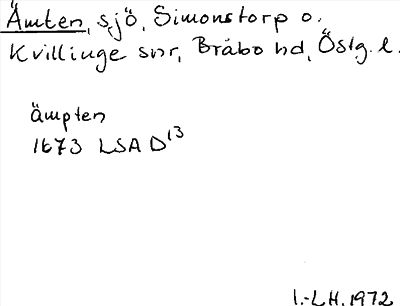 Ämten, sjö, Simonstorp o.
Kvillinge snr, Bråbo hd, Östg. l.
ämpten
1673 LSA D13
I.-L.H. 1972